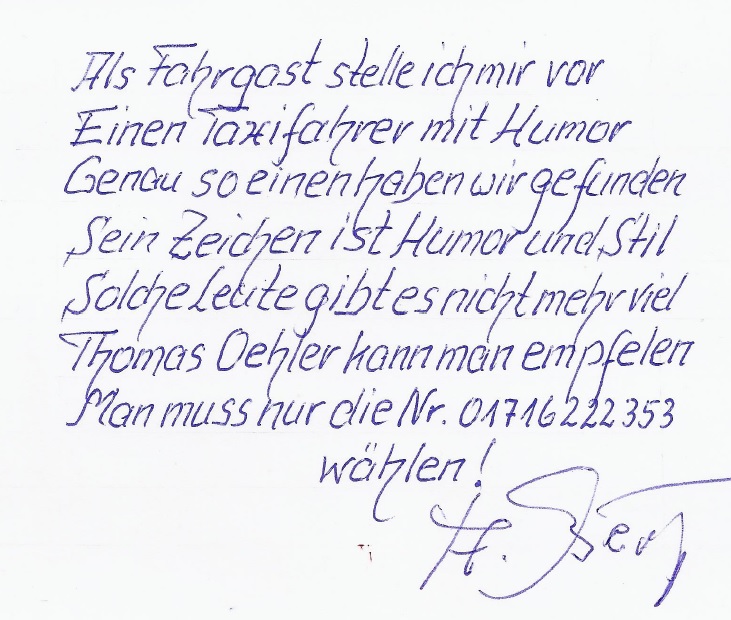 Als Fahrgast stelle ich mir vor
Einen Taxifahrer mit Humor
Genau so einen haben wir gefunden
Sein Zeichen ist Humor und Stil
Solche Leute gibt es nicht mehr viel
Thomas Oehler kann man empfelen
Man muss nur die Nr. 01716222353
wählen!
H.